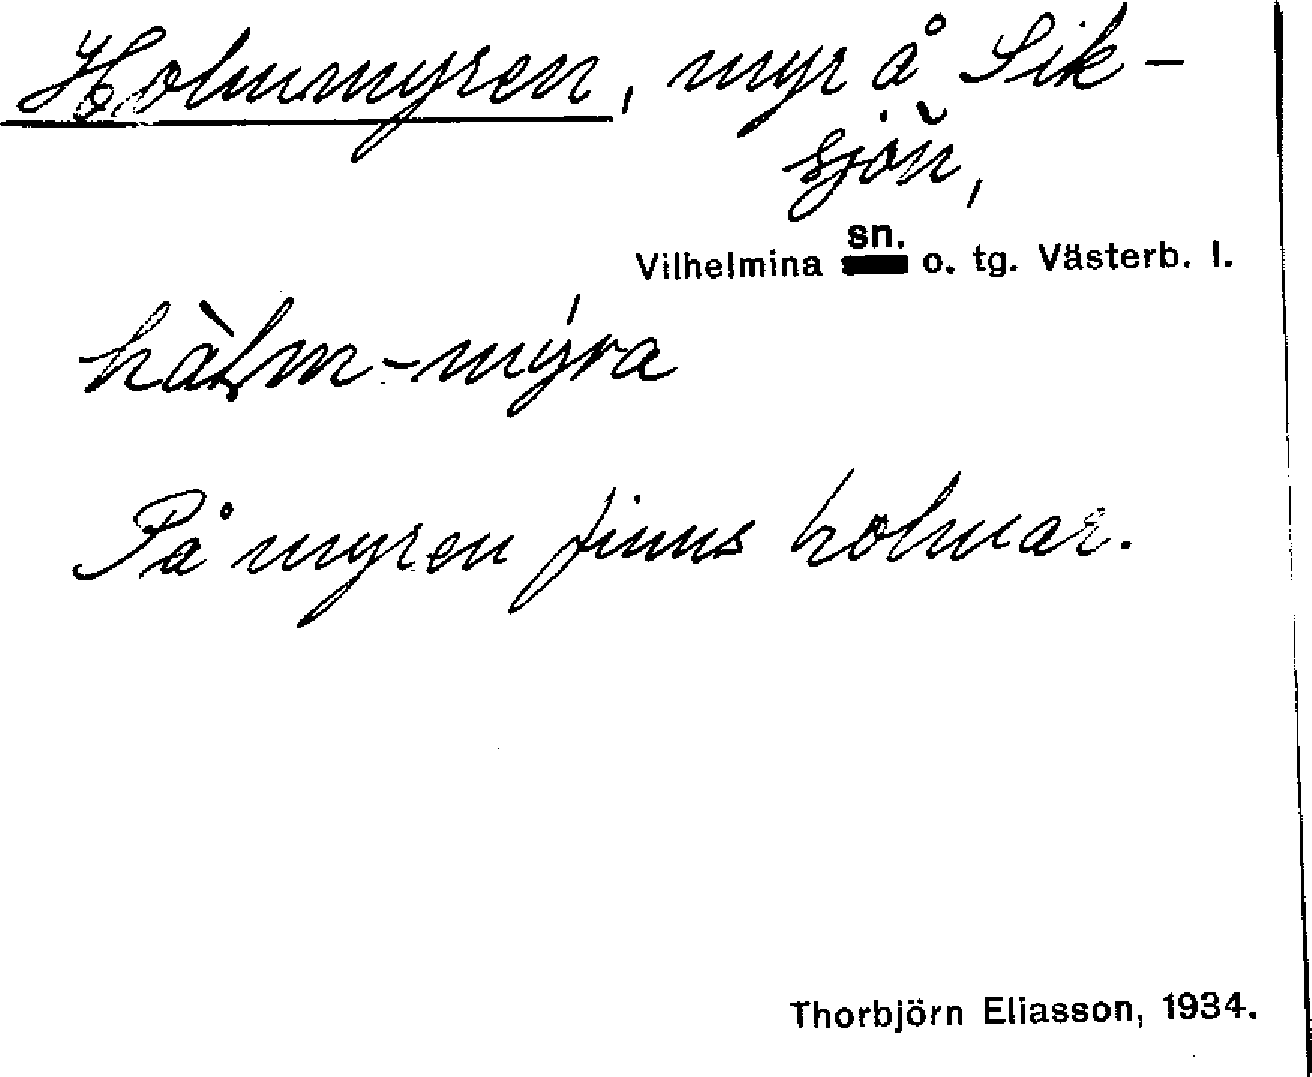 Holmmyren, myr å Sik-
sjön,
Vilhelmina sn. o. tg. Västerb. l.
hàlm-mýra
På myren finns holmar.
Thorbjörn Eliasson, 1934.